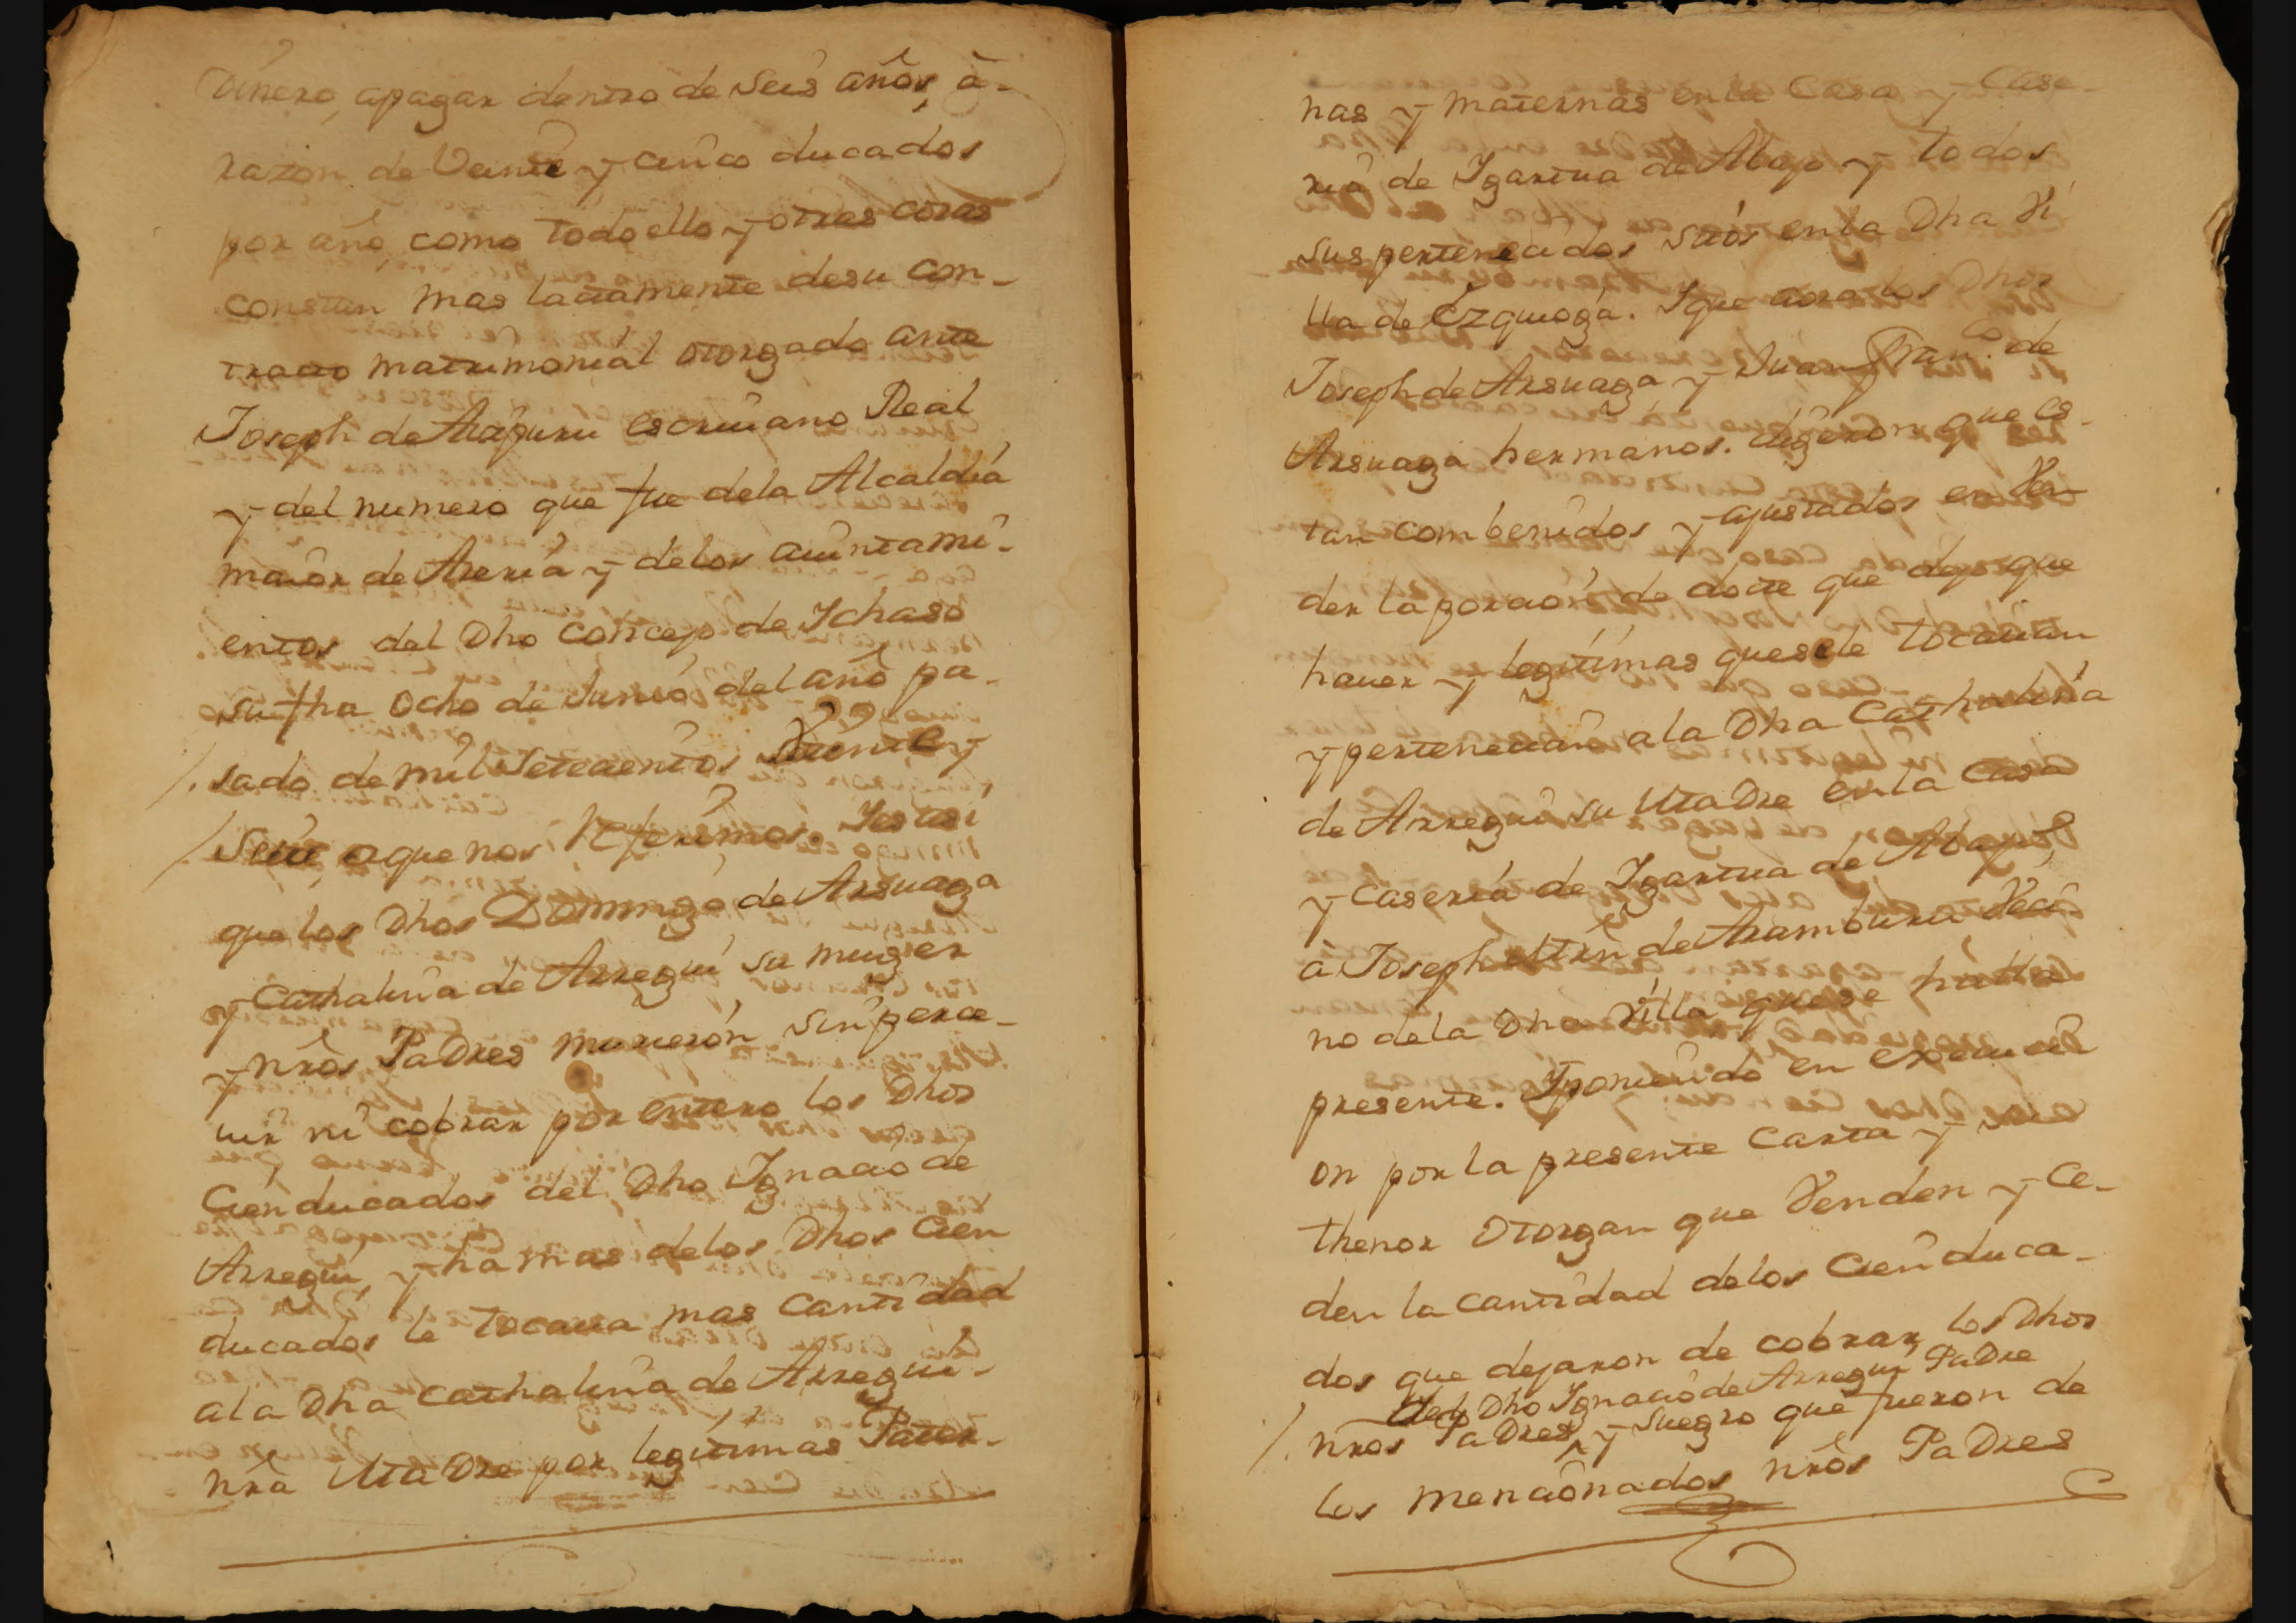 Dinero, apagar dentro de seis años, à
razon de Veinte y cinco ducados
por año, como todo ello y otras cosas
constan mas lactamente desu con-
tracto matrimonial otorgado ante
Joseph de Aizpuru escriuano Real
y del numero que fue dela Alcaldia
maior de Areria y delos aiuntami-
entos del Dho Concejo de Ichaso
su fha ocho de Junio del año pa-
sado de mil Setecientos Veinte y
Seite, aque nos Referimos. Iestasi
que los Dhos Domingo de Arsuaga
y Cathalina de Arregui su muger
y nros Padres murieron sin perce-
uir ni cobrar por entero los Dhos
Cien ducados del Dho Ignacio de
Arregui, y ha mas delos Dhos Cien
ducados le tocaua mas Cantidad
ala Dha Cathalina de Arregui
nra Madre por legitimas Pater-
nas y maternas en la Casa y Case-
ria de Igartua de Abajo y todos
sus pertenecidos sitos en la Dha Vi
lla de Ezquioga. Ique aora los Dhos
Joseph de Arsuaga y Juan Fran.co de
Arsuaga hermanos. digeron que es-
tan combenidos y ajustados en Ven-
der la porcion de dote que dejo que
hauer y legitimas quesele tocauan
y pertenecian ala Dha Cathalina
de Arregui su Madre en la Casa
y Caseria de Igartua de Abajo,
à Joseph Mrn de Aramburu Veci-
no dela Dha Villa quese halla
presente. Iponiendo en execuci
on por la presente Carta y su
thenor Otorgan que Venden y Ce-
den la Cantidad delos Cien duca-
dos que dejaron de cobrar los Dhos
del Dho Ignacio de Arregui Padre
nros Padres, y Suegro que fueron de
los mencionados nros Padres